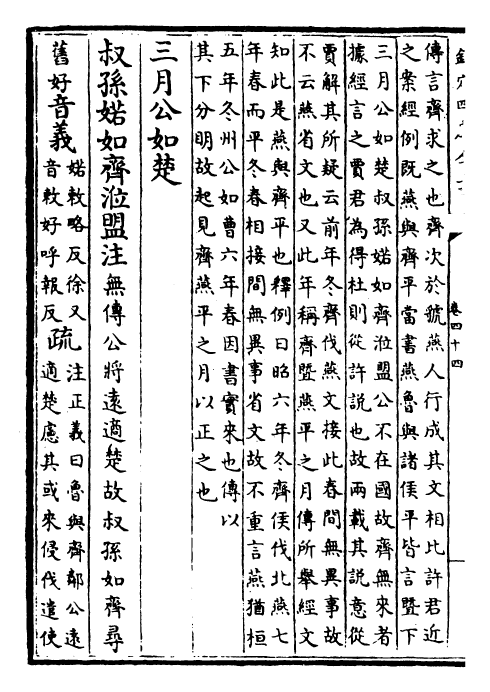 傳言齊求之也齊次於號燕人行成其文相比許君近
之案經例既燕與齊平當書燕魯與諸侯平皆言暨下
三月公如楚叔孫婼如齊涖盟公不在國故齊無來者
據經言之賈君為得杜則從許説也故兩載其説意從
賈解其所疑云前年冬齊伐燕文接此春間無異事故
不云燕省文也又此年稱齊暨燕平之月傳所舉經文
知此是燕與齊平也釋例曰昭六年冬齊侯伐北燕七
年春而平冬春相接間無異事省文故不重言燕猶桓
五年冬州公如曹六年春因書實來也傳以
其下分明故起見齊燕平之月以正之也
三月公如楚
叔孫婼如齊涖盟注無傳公將遠適楚故叔孫如齊尋
舊好音義婼敕略反徐又音敕好呼報反疏注正義曰魯與齊鄰公遠適楚慮其或來侵伐遣使
卷四十四